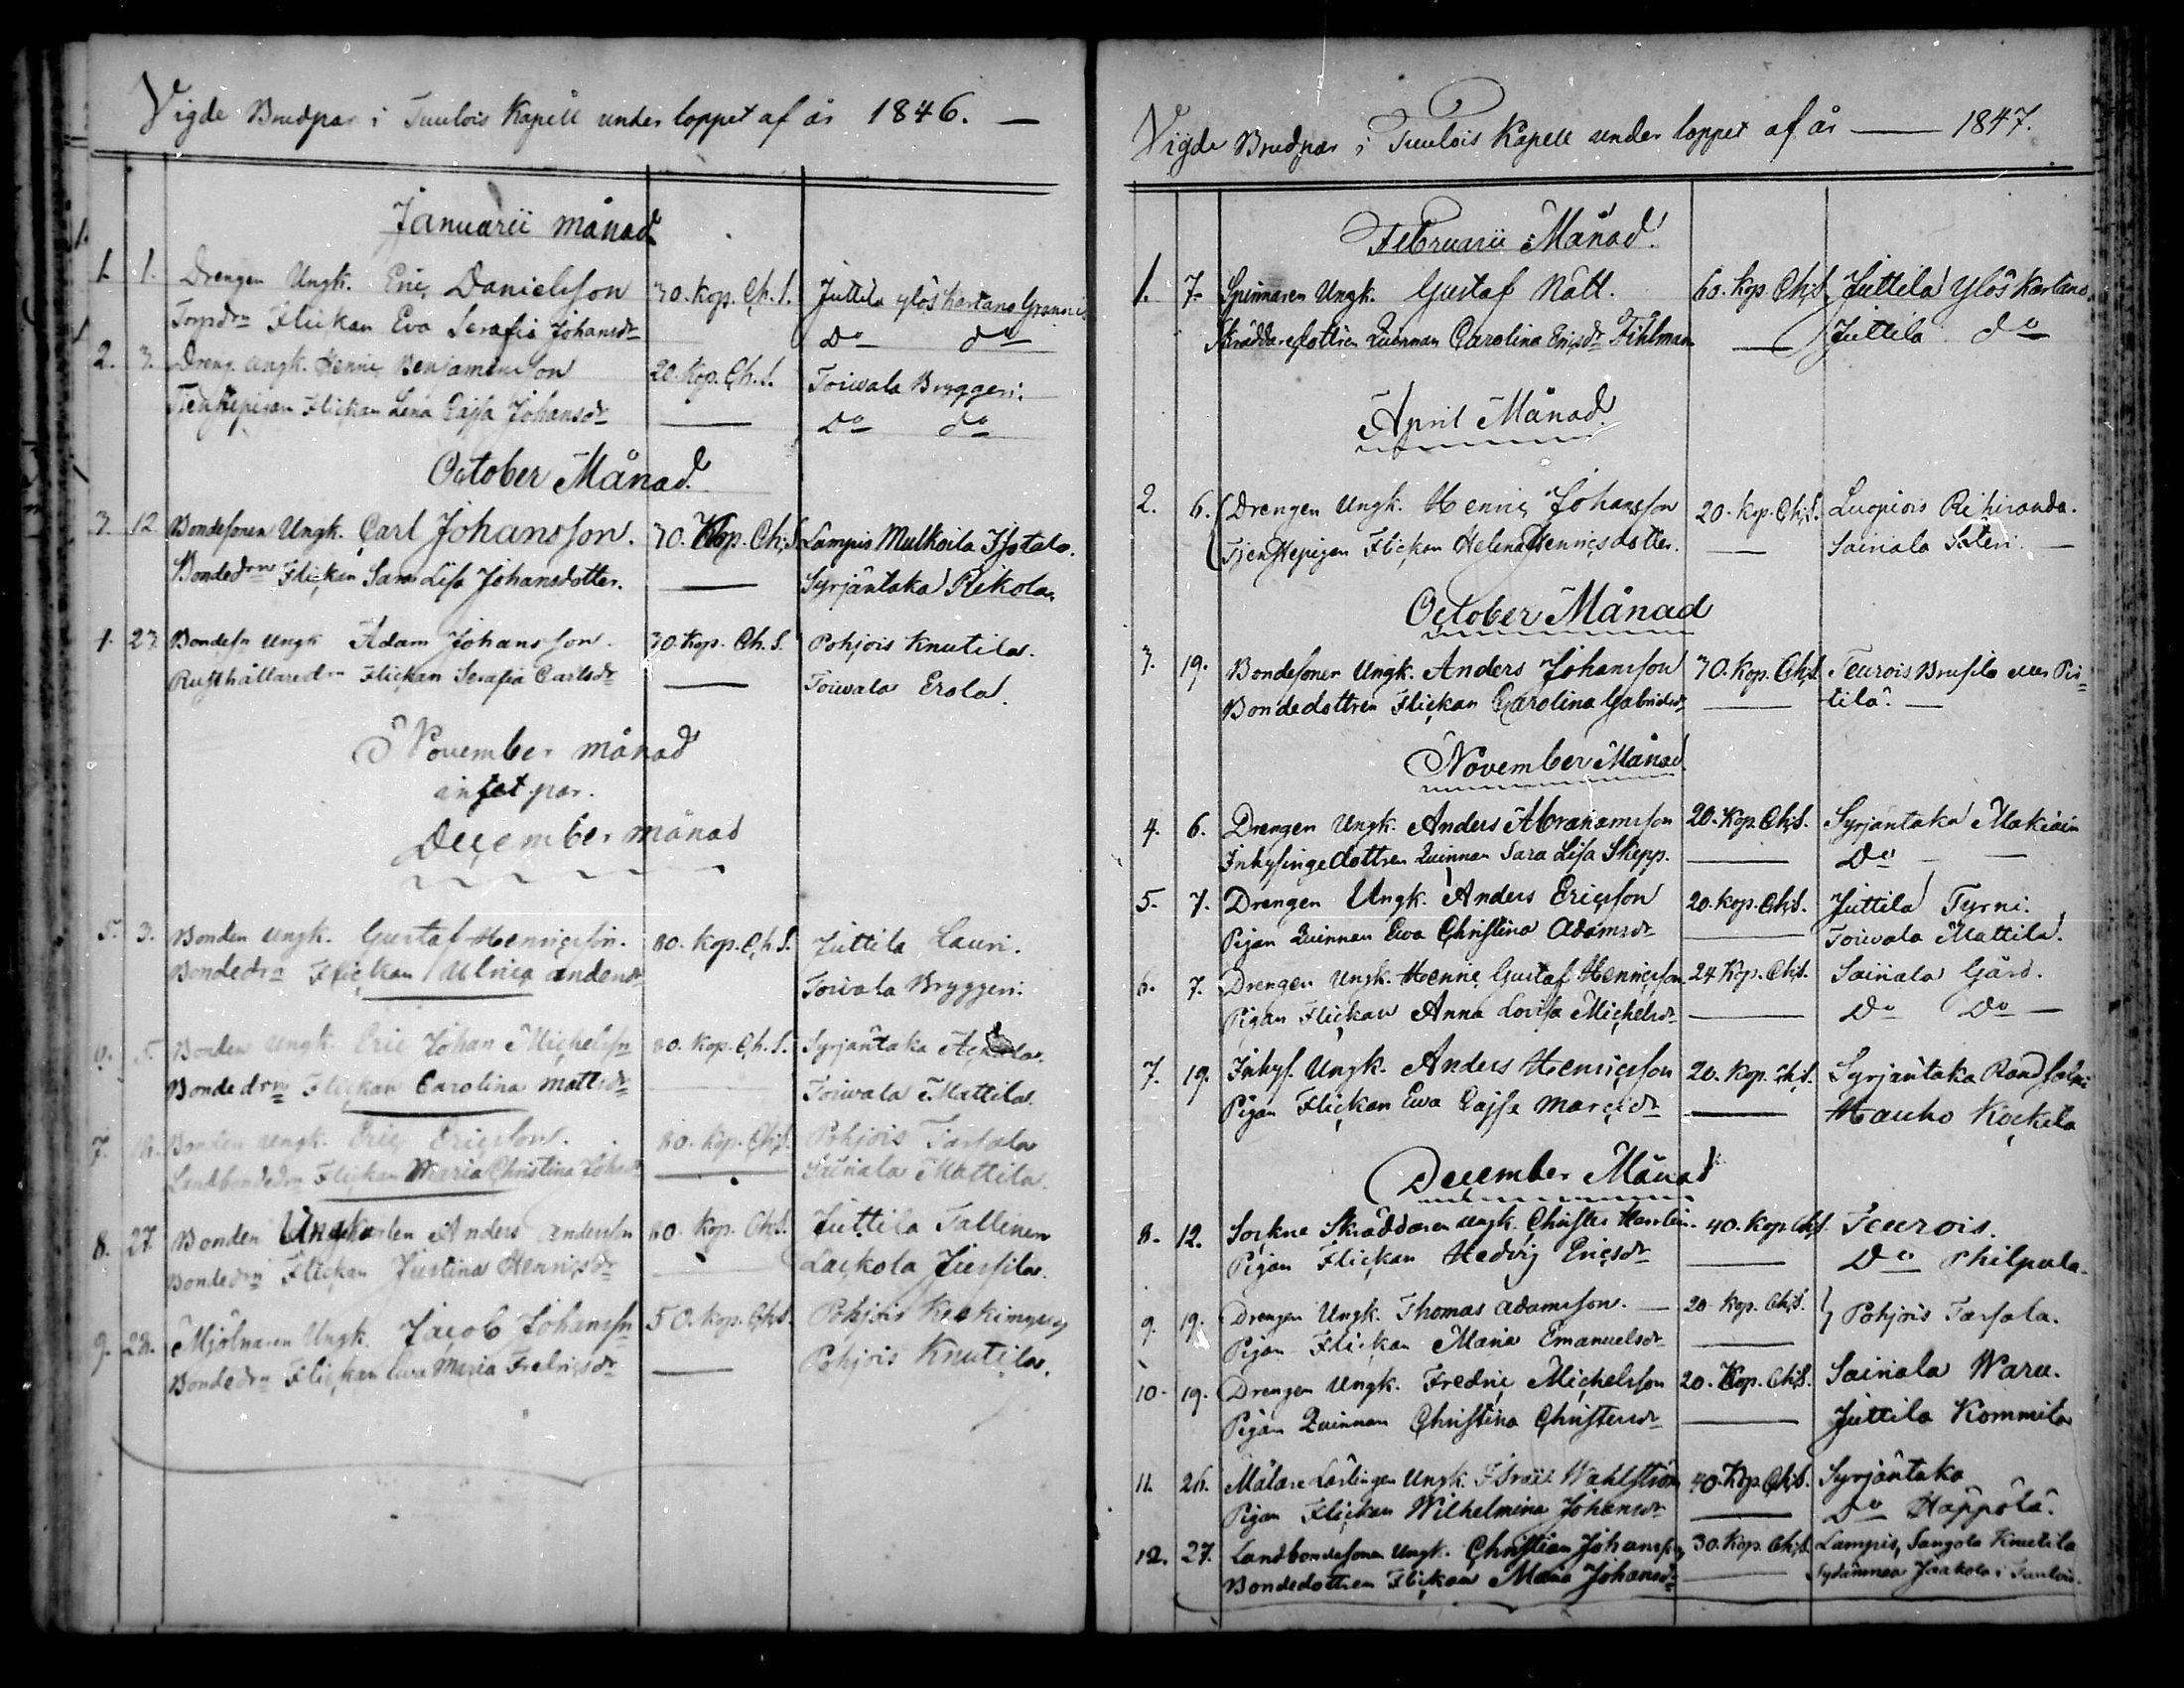 Vigde Brudpar i Tuulois Kapell under loppet af år 1846. —
Januarii månad
1. 1. Drengen Ungk. Eric Danielsson 30. Kop. Ch. S. Juttila ylöskartano
Torpdrn Flickan Eva Serafia Johansdr Do do
2. 3. Dreng. Ungk. Henric Benjaminsson 20. Kop. Ch. S. Toivala Bryggeri.
Tienstepigan Flickan Lena Cajsa Johansdr — Do do
October Månad.
3. 12 Bondesonen Ungk. Carl Johansson. 30. Kop. Ch. S. Lampis Mulkoila Isotalo.
Bondedrn Flickan Sara Lisa Johansdotter. — Syrjäntaka Rikola.
23 Bondesn Ungk Adam Johansson. 30. Kop. Ch. S. Pohjois Knutila.
Rusthållaredrn Flickan Serafia Carlsdr — Toivala Erola.
November månad
intet par.
December månad
5. 3. Bonden Ungk. Gustaf Henricsson. 80. Kop. Ch. S. Juttila Lauri.
Bondedrn Flickan Ulrica andersdr Toivala Bryggeri.
6. 5. Bonden Ungk. Eric Johan Michelssn 80. Kop. Ch. S. Syrjäntaka
Bondedrn Flickan Carolina mattsdr Toivala Mattila.
7. Bonden Ungk. Eric Ericsson. 80. Kop. Ch. S. Pohjois Tarsala
Landbondedrn Flickan Maria Christina Johsdr — Sairiala Mattila.
8. 27. Bonden Ungkarlen Anders anderssn 80. Kop. Ch. S. Juttila Tallinen
Bondedrn Flickan Justina Henricsdr — Lackola Jussila.
9. 28. Mjölnaren Ungk. Jacob Johanssn 50. Kop. Ch. S. Pohjois
Bondedrn Flickan Eva Maria Fredricsdr — Pohjois Knutila.
Vigde Brudpar i Tuulois Kapell under loppet af år — 1847.
Februarii Månad.
1. 7. Spinnaren Ungk. Gustaf Nätt. 60. Kop. Ch. S. Juttila Ylöskartano.
Skräddaredottren Quinnan Carolina Ericsdr Fihlman — Juttila do
April Månad.
2. 6. Drengen Ungk. Henric Johansson 20. Kop. Ch. S. Luopiois
Tjenstepigan Flickan Helena Henricsdotter. — Sairiala Säteri. —
October Månad
3. 19. Bondesonen Ungk. Anders Johansson 30. Kop. Ch. S. Teurois Brusila eller Pis=
Bondedottren Flickan Carolina Gabrielsdr — tilä. —
November Månad.
4. 6. Drengen Ungk. Anders Abrahamsson 20. Kop. Ch. S. Syrjäntaka
Inhysingedottren Quinnan Sara Lisa Skepp. — Do —
5. 7. Drengen Ungk. Anders Ericsson 20. Kop. Ch. S. Juttila Tyrni.
Pigan Quinnan Eva Christina Adamsdr — Toivala Mattila.
6. 7. Drengen Ungk. Henric Gustaf Henricsson 24 Kop. Ch. S. Sairiala Gård.
Pigan Flickan Anna Lovisa Michelsdr — Do Do —
7. 19. Inhys. Ungk. Anders Henricsson 20. Kop. Ch. S. Syrjäntaka
Pigan Flickan Eva Cajsa Marcidr — Hauho Kockila
December Månad
8. 12. Sockne Skräddaren Ungk. Christer 40. Kop. Ch. S. Teurois.
Pigan Flickan Hedvig Ericsdr — Do Philpula.
9. 19. Drengen Ungk. Thomas adamsson. — 20 Kop. Ch. S. } Pohjois Tarsala.
Pigan Flickan Maria Emanuelsdr —
10. 19. Drengen Ungk. Fredric Michelsson 20. Kop. Ch. S. Sairiala Waru.
Pigan Quinnan Christina Christersdr — Juttila Kommila
11. 26. Målare Lärlingen Ungk. Israel Wahlström 40. Kop. Ch. S. Syrjäntaka
Pigan Flickan Wilhelmina Johansdr — Do Häppölä.
12. 27. Landbondesonen Ungk. Christian Johansson 30. Kop. Ch. S. Lampis, Sangola Knutila
Bondedottren Flickan Maria Johansdr — Sydänmaa Jaakola i Tuulois.